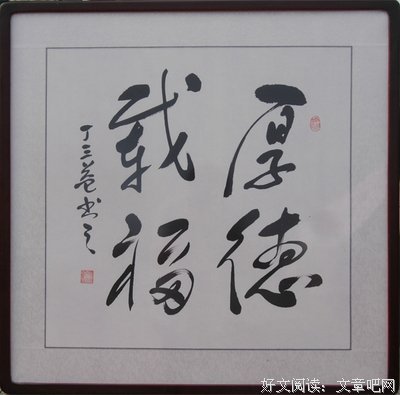 厚德
载福
丁三 书之
好文阅读：文章吧网